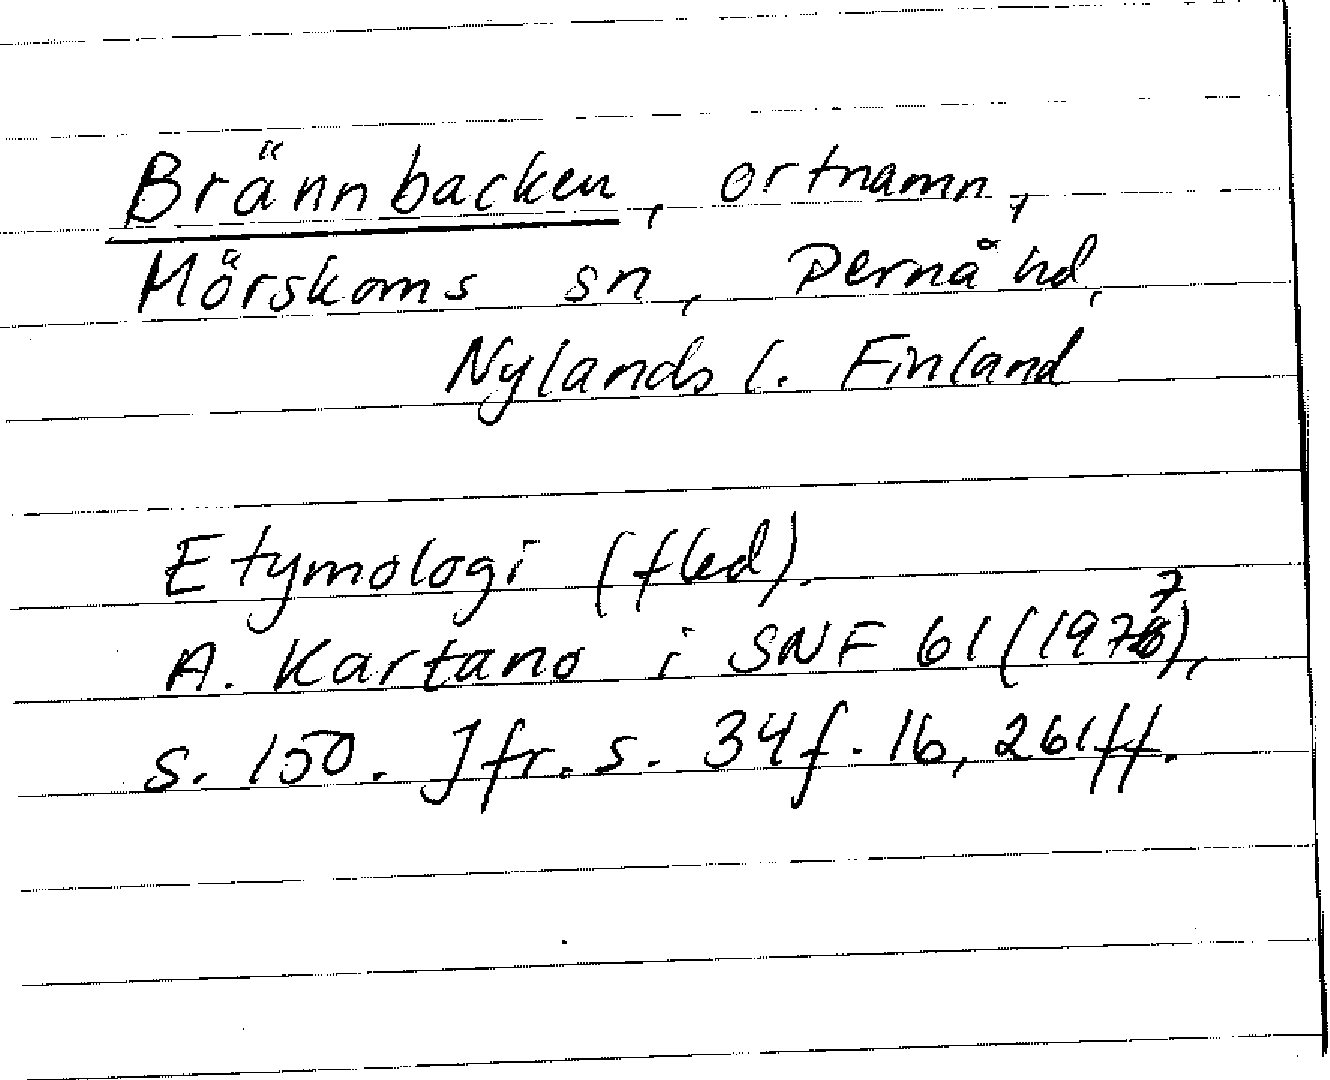 Brännbacken, ortnamn,
Mörskoms sn, Pernå hd,
Nylands l. Finland
Etymologi (fled).
A. Kartano i SNF 61 (1977),
s. 150. Jfr. s. 34f. 16, 261ff.